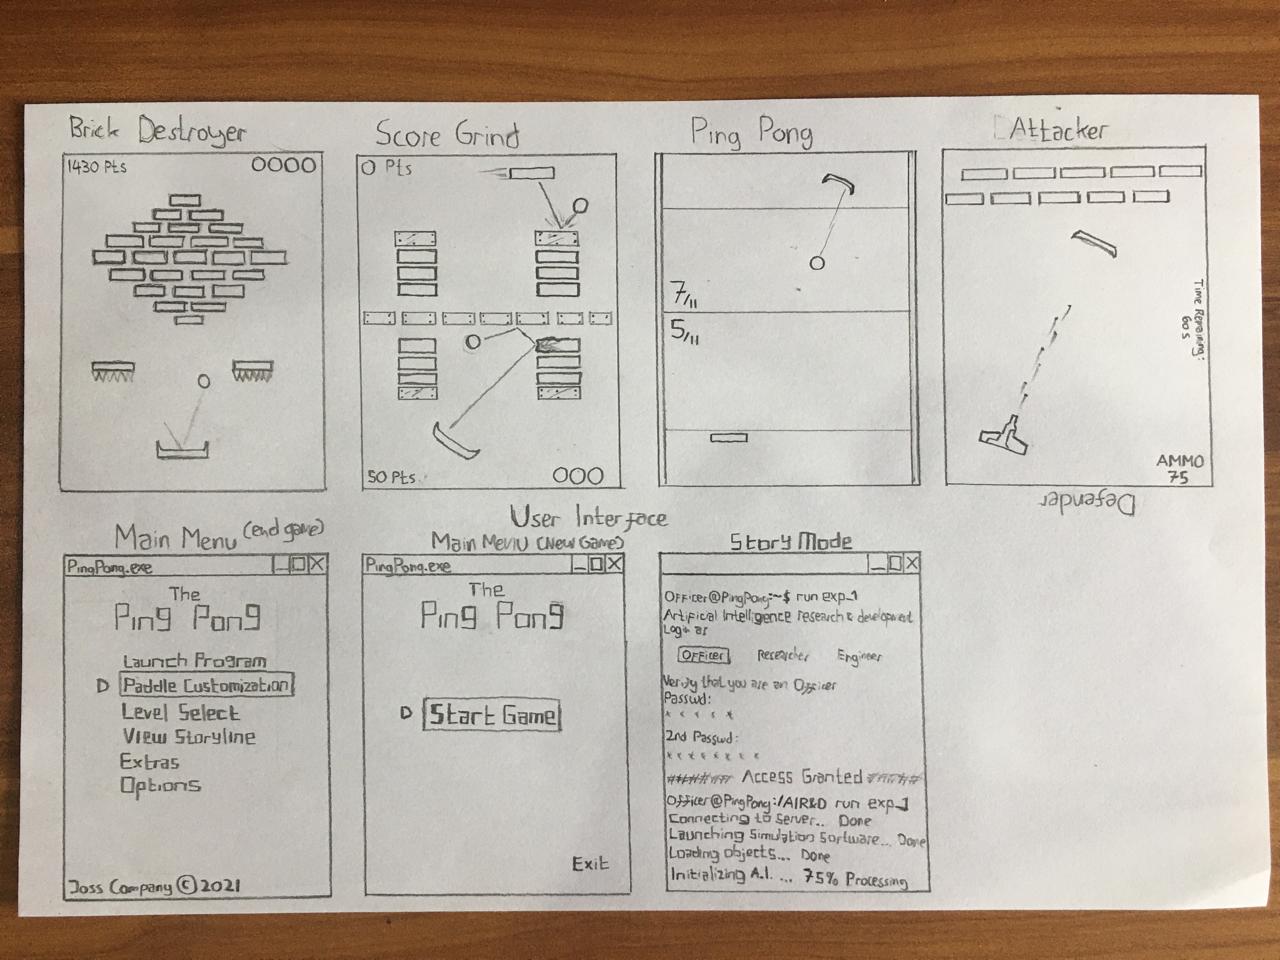 Brick Destroyer
1430 Pts
Score Grind
0 Pts
50 Pts.
Ping Pong
7/11
5/11
Attacker
Time Remaining:
60 s
AMMO
75
Defender
User Interface
Main Menu (end game)
PingPong.exe
The
Ping Pong
Launch Program
Paddle Customization
Level Select
View Storyline
Extras
Options
Joss Company © 2021
Main Menu (New Game)
PingPong.exe
The
Ping Pong
Start Game
Exit
Story Mode
Officer@PingPong:~$ run exp_1
Artificial Intelligence research & development
Login as
Officer Researcher Engineer
Verify that you are an Officer
Passwd:
* * * * *
2nd Passwd:
* * * * * * * *
####### Access Granted #####
Officer@PingPong:/AIR&D run exp_1
Connecting to Server.. Done
Launching Simulation Software... Done
Loading objects... Done
Initializing A.I. ... 75% Processing